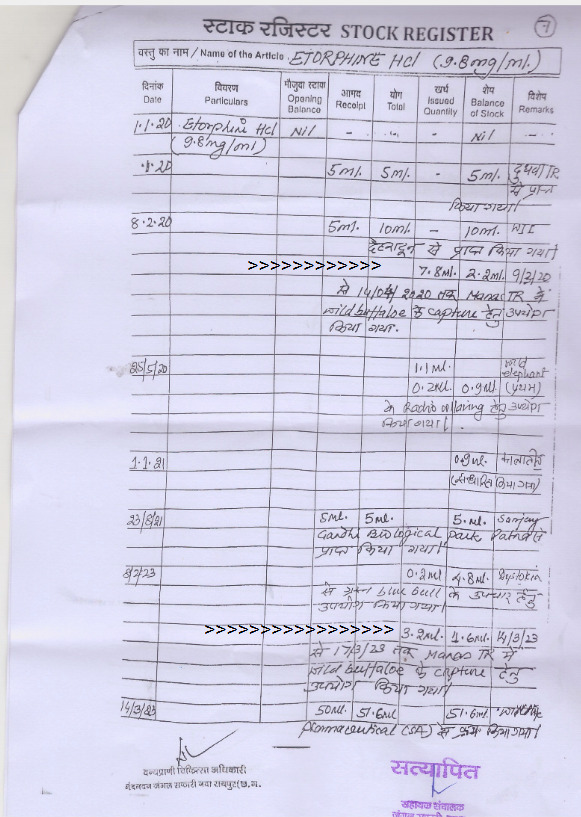 स्टाक रजिस्टर STOCK REGISTER
7
वस्तु का नाम / Name of the Article ETORPHINE HCl (9.8mg/ml)
दिनांक Date विवरण Particulars मौजुदा स्टाक Opening Balance आमद Receipt योग Total खर्च Issued Quantity शेष Balance of Stock विशेष Remarks
1.1.20 Etorphine HCl Nil - - - Nil -
(9.8mg/ml)
1.20 5ml. 5ml. - 5ml. दुधवा TR
से प्राप्त
किया गया।
8.2.20 5ml. 10ml. - 10ml. WII
देहरादून से प्राप्त किया गया।
>>>>>>>>>>>> 7.8ml. 2.2ml. 9/2/20
से 14/04/2020 तक Manas TR में
wild buffaloe के capture हेतु उपयोग
किया गया.
25/5/20 1.1ml. wild
elephant
0.2ml. 0.9ml. (प्रथम)
के Radio collaring हेतु उपयोग
किया गया।
1.1.21 0.9ml. कालातीत
23/8/21 5ml. 5ml. 5.ml. Sanjay
Gandhi Biological park Patna से
प्राप्त किया गया।
8/2/23 0.2ml 4.8ml. Dystokia
से ग्रस्त blue bull के उपचार हेतु
उपयोग किया गया।
>>>>>>>>>>>>>>>>> 3.2ml. 1.6ml. 14/3/23
से 17/3/23 तक Manas TR में
wild buffaloe के capture हेतु
उपयोग किया गया।
14/3/23 50ml 51.6ml 51.6ml.
pharmaceutical (SA) से क्रय किया गया।
वन्यप्राणी चिकित्सा अधिकारी
नंदनवन जंगल सफारी नवा रायपुर (छ.ग.
सत्यापित
सहायक संचालक
जंगल सफारी